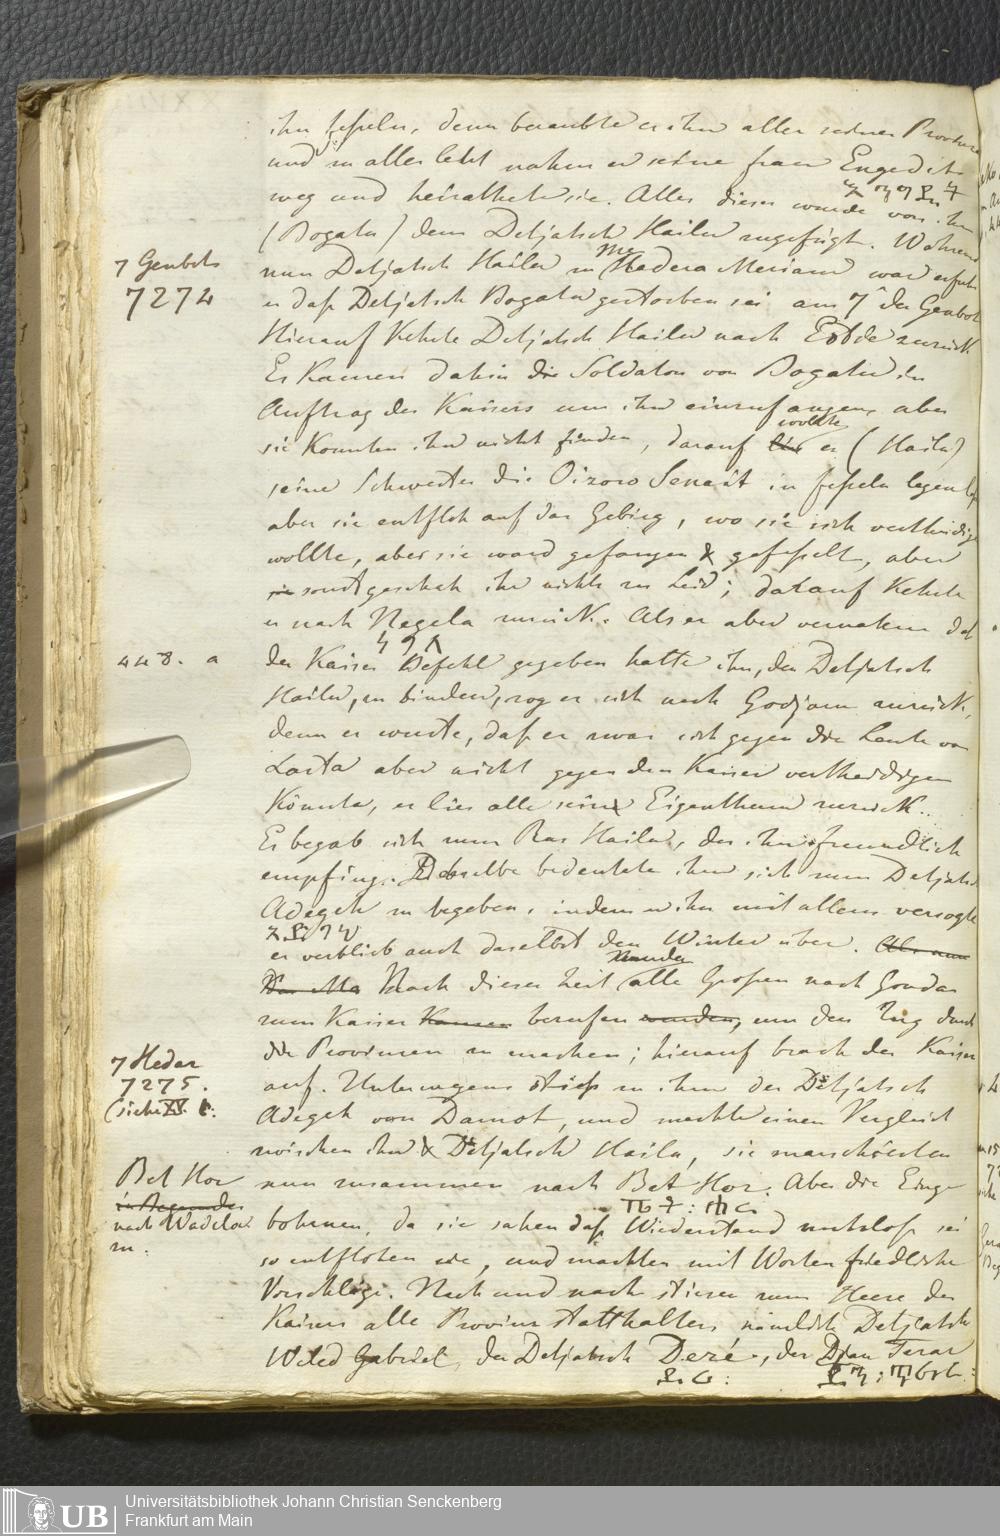 ihn feßeln, denn beraubte er ihn aller seiner Provinzen
und zu aller letzt nahm er seine frau Engedit
weg und heirathete sie. Alles dieses wurde von ihm
(Bogatu) dem Detjatsch Hailu zugefügt. Wahrend
7 Genbot
7274
nun Detjatsch Hailu in Madera Meriam war erfuhr
er daß Detjatsch Bogatu gestorben sei am 7t der Genbot
Hierauf kehrte Detjatsch Hailu nach Ebde zurück
Es kamen dahin die Soldaten von Bogatu im
Auftrag des Kaisers um ihn einzufangen, aber
sie konnten ihn nicht finden, darauf wollte er (Hailu)
seine Schwester die Oizoro Senait in feßeln legen
aber sie entfloh auf das Gebirg, wo sie sich vertheidigen
wollte, aber sie ward gefangen & gefeßelt, aber
sonst geschah ihr nichts zu Leid; darauf kehrte
er nach Negela zurück. Als er aber vernahm daß
ነገላ
448. a
der Kaiser Befehl gegeben hatte ihn, den Detjatsch
Hailu, zu binden, zog er sich nach Godjam zurück,
denn er wuste, daß er zwar sich gegen die Leute von
Lasta aber nicht gegen den Kaiser vertheidigen
könnte, er lies alle sein Eigenthum zurück.
Er begab sich zum Ras Hailu, der ihn freundlich
empfing. Derselbe bedeutete ihm sich zum Detjatsch
Adegeh zu begeben, indem er ihn mit allem versorgte
er verblieb auch daselbst den Winter über. Als nun
Nach dieser Zeit wurden alle Großen nach Gondar
zum Kaiser Kamen berufen werden, um den Zug durch
die Provinzen zu machen; hierauf brach der Kaiser
7 Hedar
7275.
(siehe XV.
auf. Unterwegens stieß zu ihm der Detjatsch
Adegeh von Damot, und machte einen Vergleich
zwischen ihm & Detjatsch Hailu, sie marschierten
Bet Hor
nach Wadela
zu.
nun zusammen nach Bet Hor. Aber die Einge
ቤት: ሖር
bohrnen, da sie sahen daß Wiederstand nutzloß sei
so entflohen sie, und machten mit Worten friedliche
Vorschläge. Nach und nach stiesen zum Heere des
Kaisers alle Provinz statthalter, nämlich Detjatsch
Weled Gabriel, der Detjatsch Deré, der Djan Terar